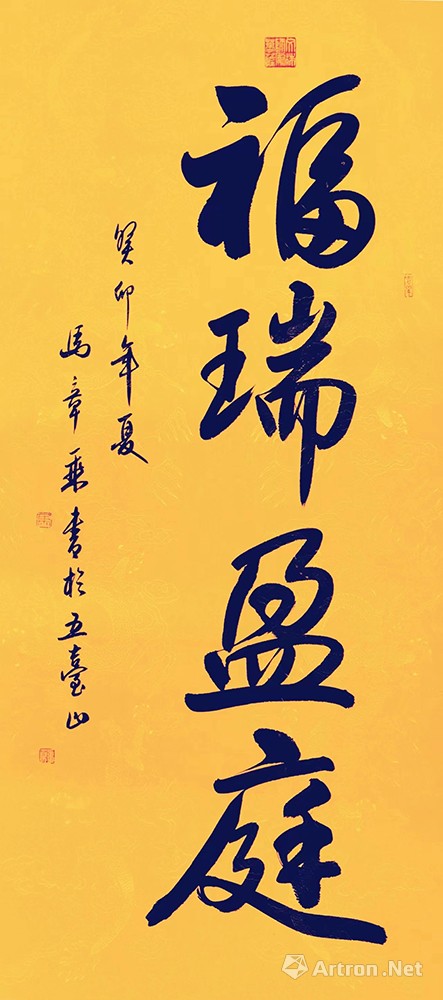 福瑞盈庭
癸卯年夏
馬章乘書於五臺山
Artron.Net